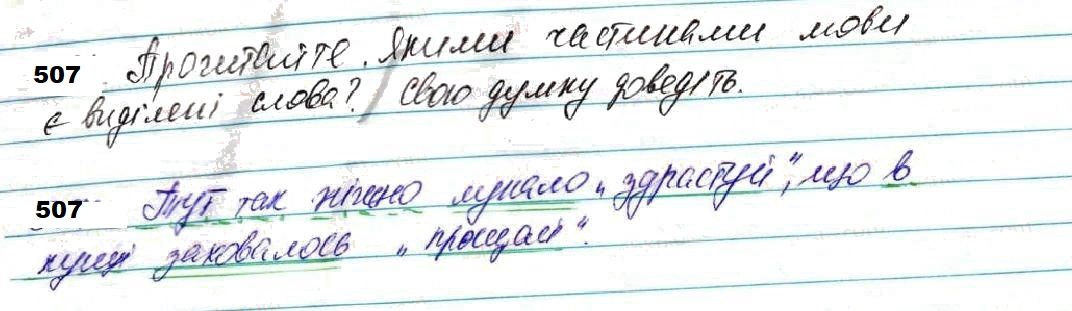 507 Прочитайте. Якими частинами мови
є виділені слова? Свою думку доведіть.
507 Тут так ніжно лунало „здрастуй", що в
кущі заховалось „прощай".